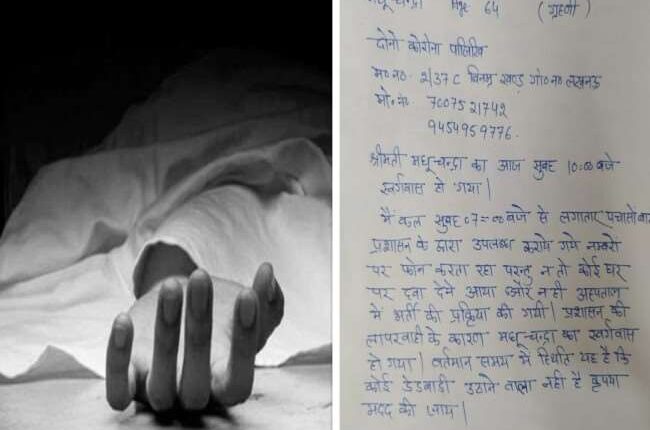 मधु चन्द्रा Age 64 (गृहणी)
दोनो कोरोना पाजिटिव
म०न०- 2/37 C विनम्र खण्ड गो०न० लखनऊ
मो०नं० 7007521742
9454959776.
श्रीमती मधु चन्द्रा का आज सुबह 10:00 बजे
स्वर्गवास हो गया।
मैं कल सुबह 07=00 बजे से लगातार पचासो बार
प्रशासन के द्वारा उपलब्ध कराये गये नम्बरो
पर फोन करता रहा परन्तु न तो कोई घर
पर दवा देने आया और न ही अस्पताल
मे भर्ती की प्रक्रिया की गयी। प्रशासन की
लापरवाही के कारण मधु चन्द्रा का स्वर्गवास
हो गया। वर्तमान समय मे स्थिति यह है कि
कोई डेडबाडी उठाने वाला नही है कृपया
मदद की जाय।